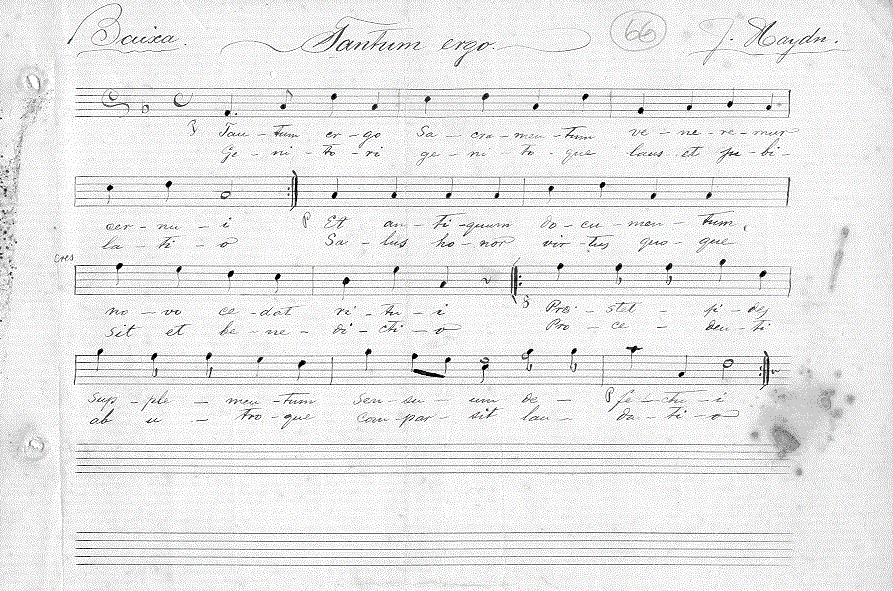 Baixa. Tantum ergo. 66 J. Haydn.
Tan - tum er - go Sa - cra - men - tum ve - ne - re - mur
Ge - ni - to - ri ge - ni to - que laus et ju - bi -
cer - nu - i P Et an - ti - quum do - cu - men - tum,
la - ti - o Sa - lus ho - nor vir - tus quo - que
cres
no - vo ce - dat ri - tu - i Præ - stet - fi - des
sit et be - ne - di - cti - o Pro - ce - den - ti
sup - ple - men - tum sen - su - um de - P fe - ctu - i
ab u - tro - que com - par - sit lau - da - ti - o